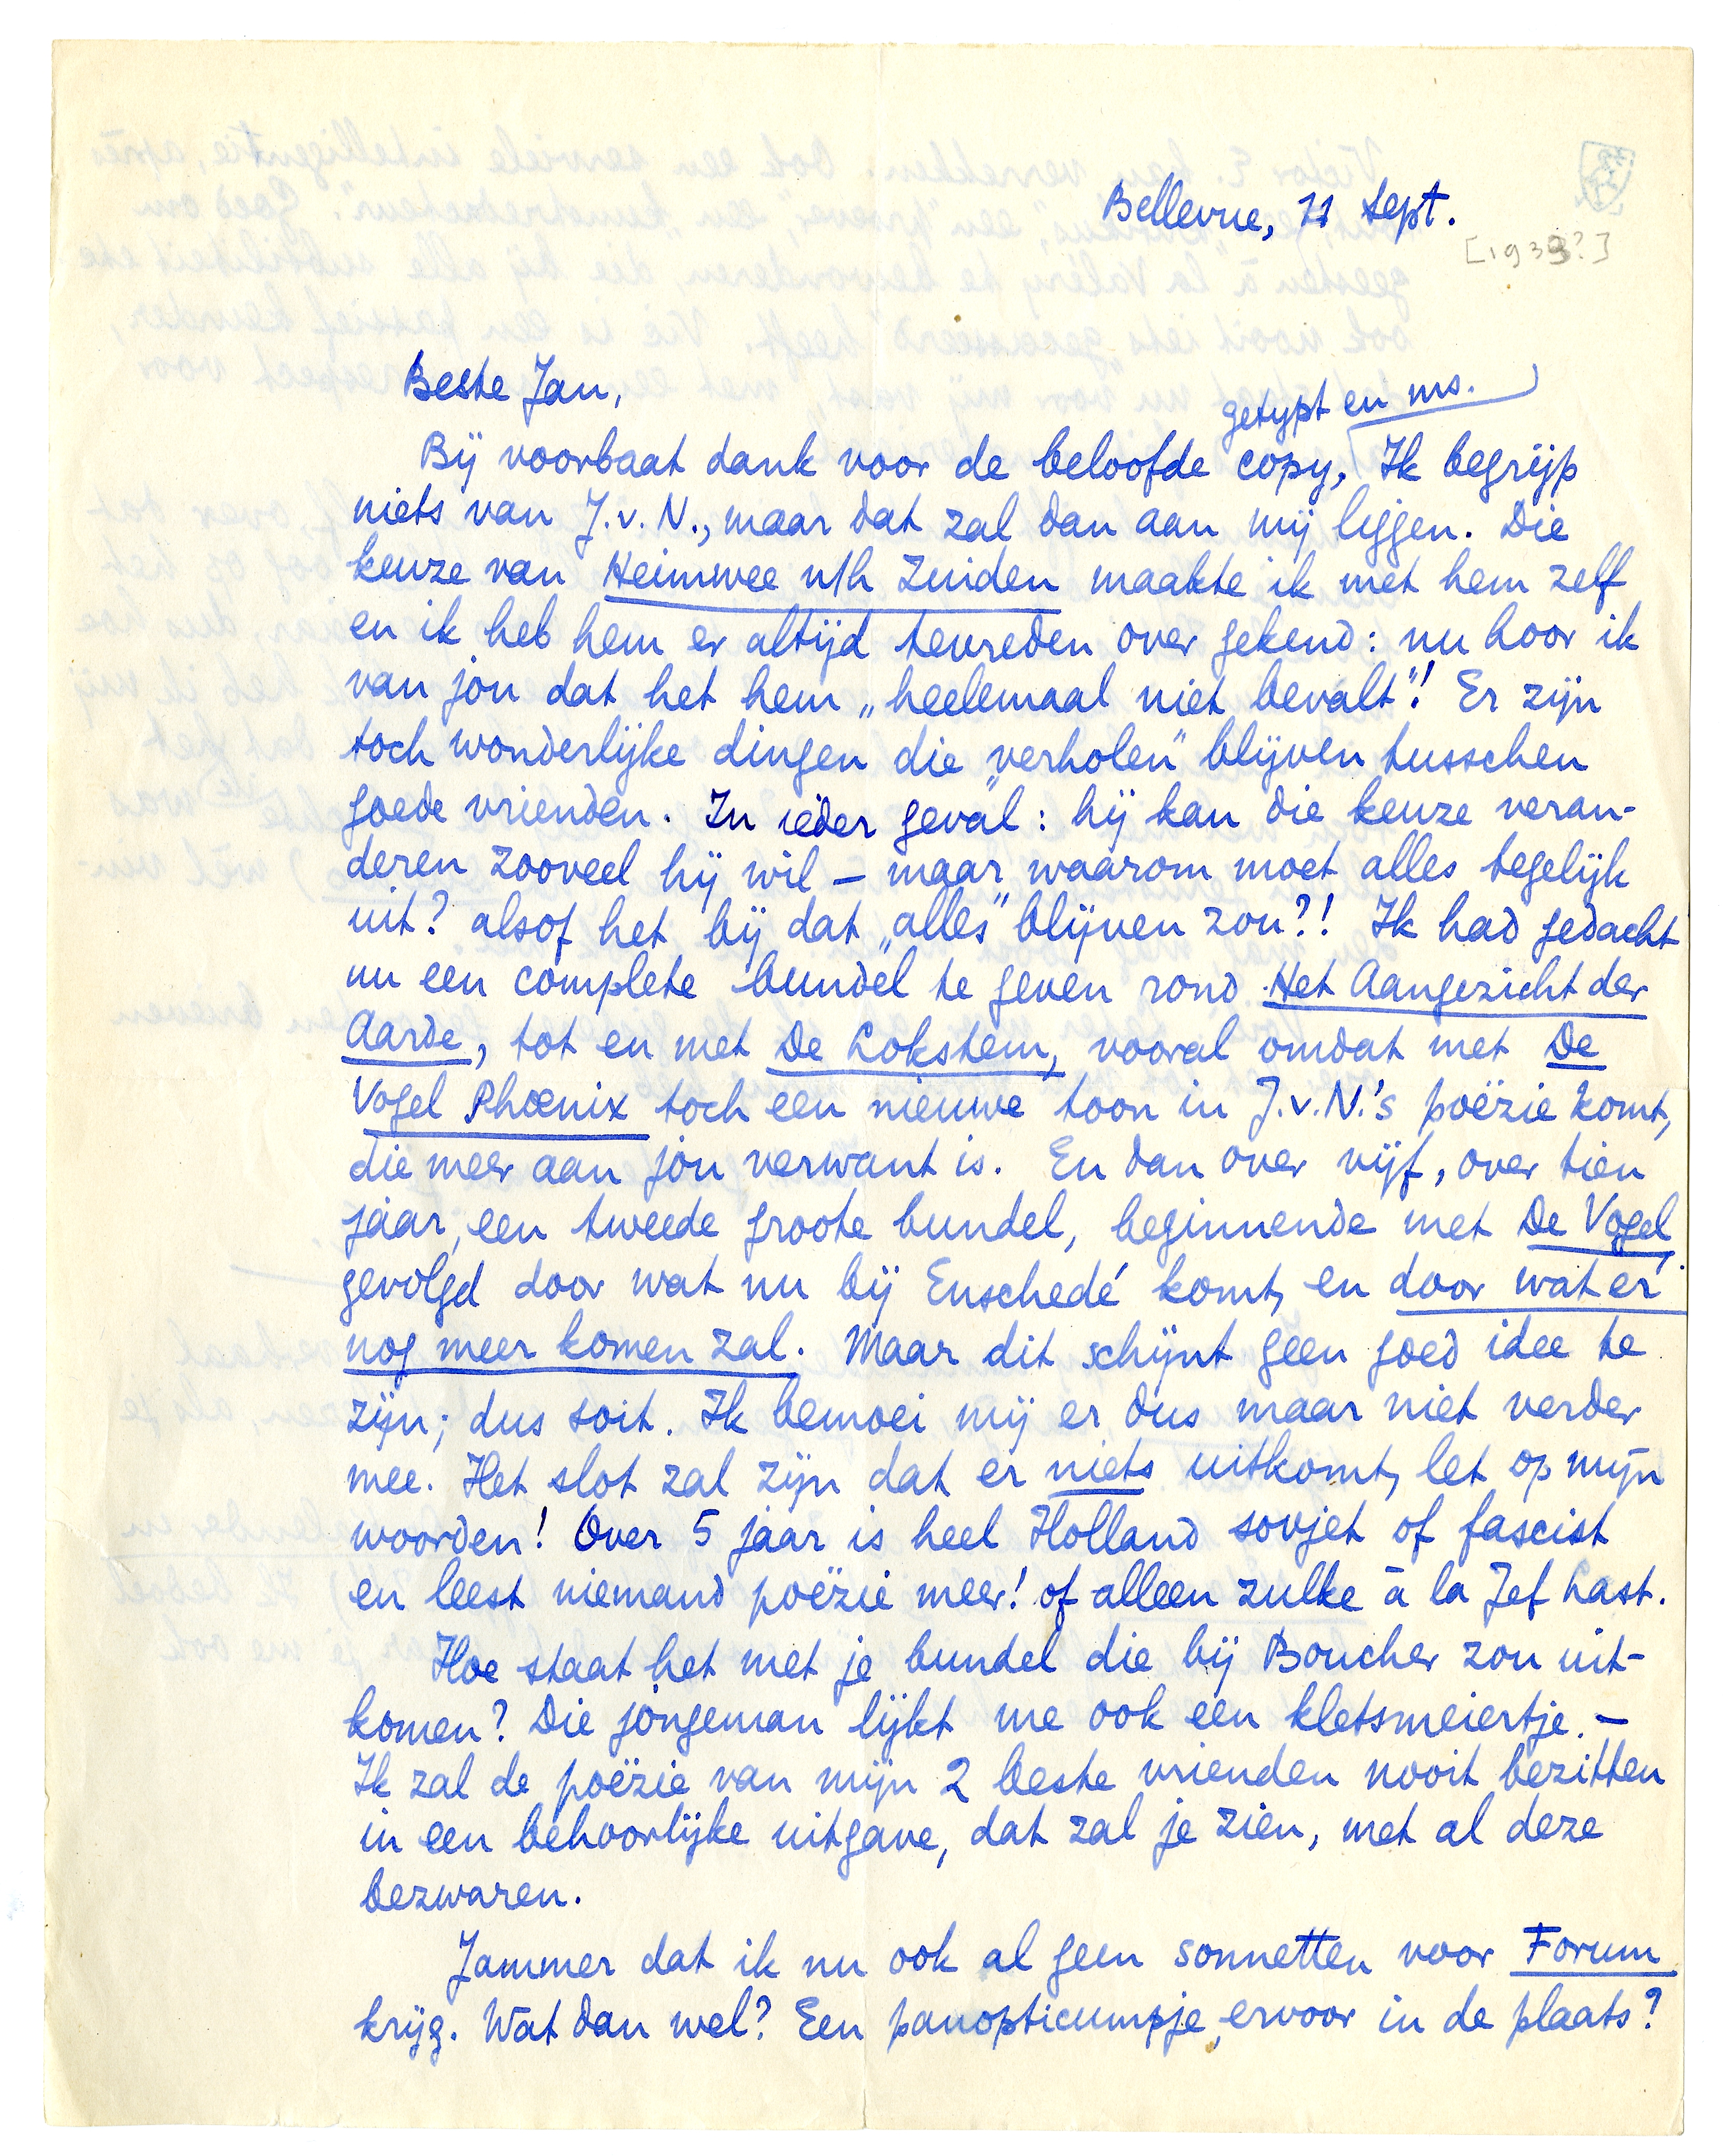 Bellevue, 11 Sept.
[1933?]
Beste Jan,
getypt en ms.
Bij voorbaat dank voor de beloofde copy. Ik begrijp
niets van J.v.N., maar dat zal dan aan mij liggen. Die
keuze van Heimwee n/h Zuiden maakte ik met hem zelf
en ik heb hem er altijd tevreden over gekend: nu hoor ik
van jou dat het hem „heelemaal niet bevalt"! Er zijn
toch wonderlijke dingen die „verholen" blijven tusschen
goede vrienden. In ieder geval: hij kan die keuze veran-
deren zooveel hij wil – maar waarom moet alles tegelijk
uit? alsof het bij dat „alles" blijven zou?! Ik had gedacht
nu een complete bundel te geven rond Het Aangezicht der
Aarde, tot en met De Lokstem, vooral omdat met De
Vogel Phoenix toch een nieuwe toon in J.v.N.'s poëzie komt,
die meer aan jou verwant is. En dan over vijf, over tien
jaar, een tweede groote bundel, beginnende met De Vogel,
gevolgd door wat nu bij Enschedé komt, en door wat er
nog meer komen zal. Maar dit schijnt geen goed idee te
zijn; dus soit. Ik bemoei mij er dus maar niet verder
mee. Het slot zal zijn dat er niets uitkomt, let op mijn
woorden! Over 5 jaar is heel Holland sovjet of fascist
en leest niemand poëzie meer! of alleen zulke à la Jef Last.
Hoe staat het met je bundel die bij Boucher zou uit-
komen? Die jongeman lijkt me ook een kletsmeiertje. –
Ik zal de poëzie van mijn 2 beste vrienden nooit bezitten
in een behoorlijke uitgave, dat zal je zien, met al deze
bezwaren.
Jammer dat ik nu ook al geen sonnetten voor Forum
krijg. Wat dan wel? Een panopticumpje ervoor in de plaats?